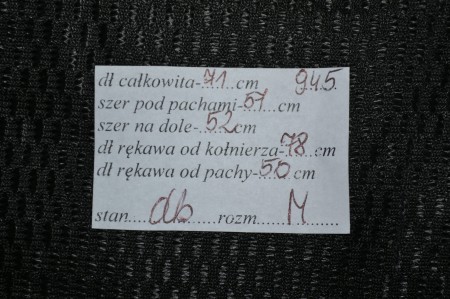 dł całkowita-..71...cm 945
szer pod pachami-57...cm
szer na dole-.52cm
dł rękawa od kołnierza-78.cm
dł rękawa od pachy-50cm
stan....db.......rozm....M.......